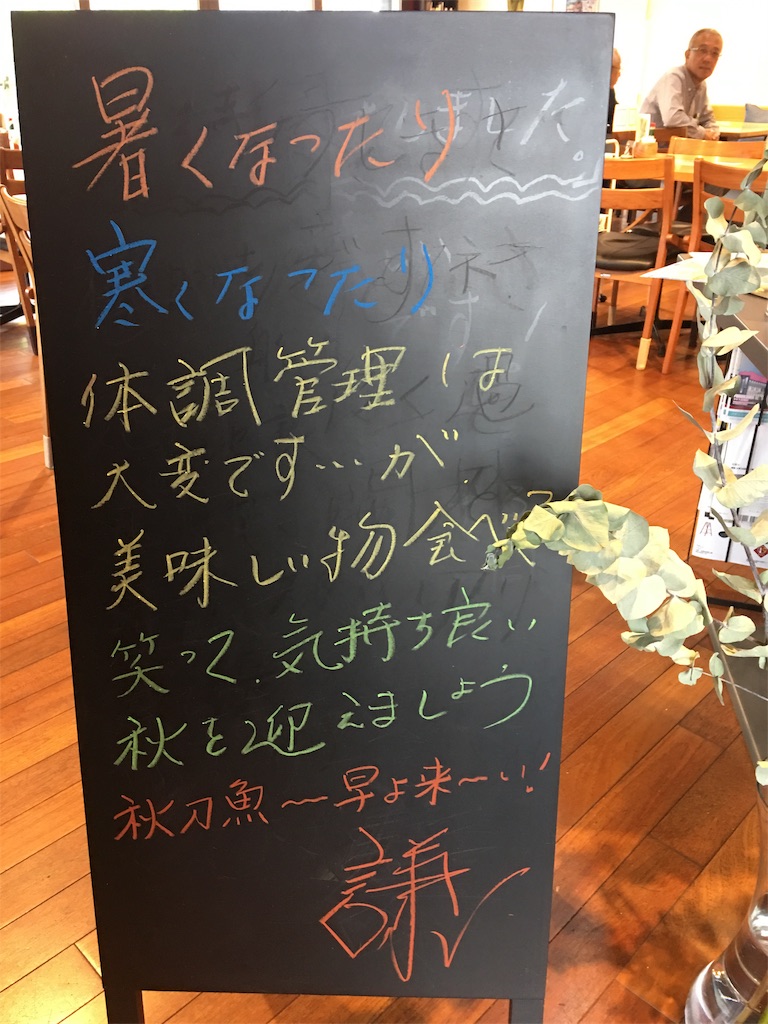 暑くなったり
寒くなったり
体調管理は
大変です…が
美味しい物食べて
笑って気持ち良い
秋を迎えましょう
秋刀魚〜早よ来〜い!
謙